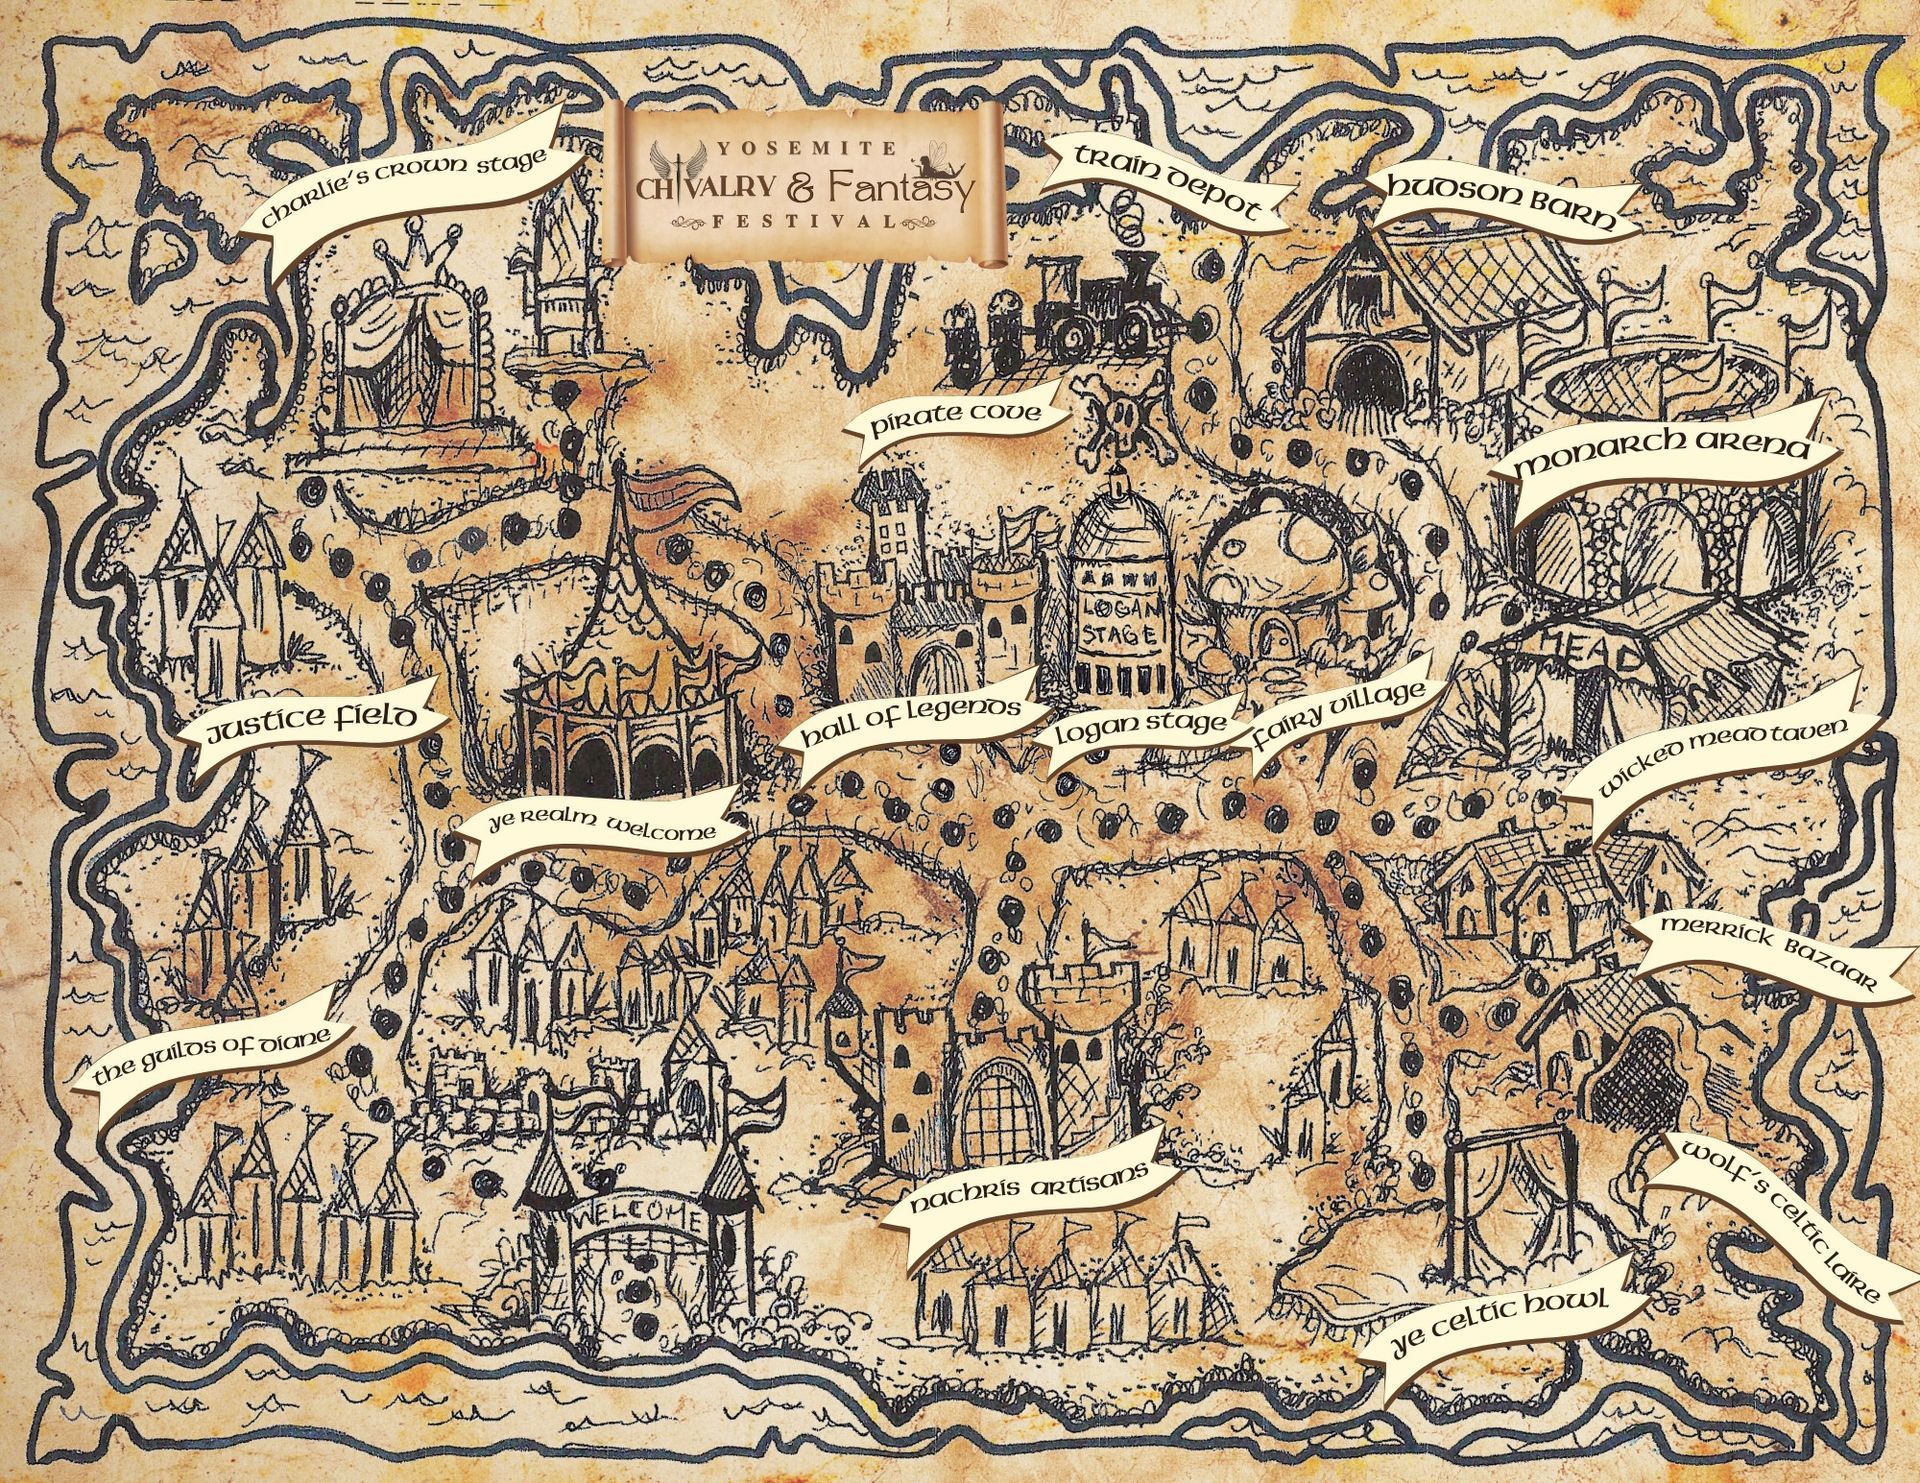 YOSEMITE
CHIVALRY & Fantasy
FESTIVAL
charlie's crown stage
train depot
hudson barn
pirate cove
monarch arena
LOGAN
STAGE
MEAD
justice field
hall of legends
logan stage
fairy village
wicked mead taven
ye realm welcome
merrick bazaar
the guilds of diane
WELCOME
nachris artisans
wolf's celtic laire
ye celtic howl